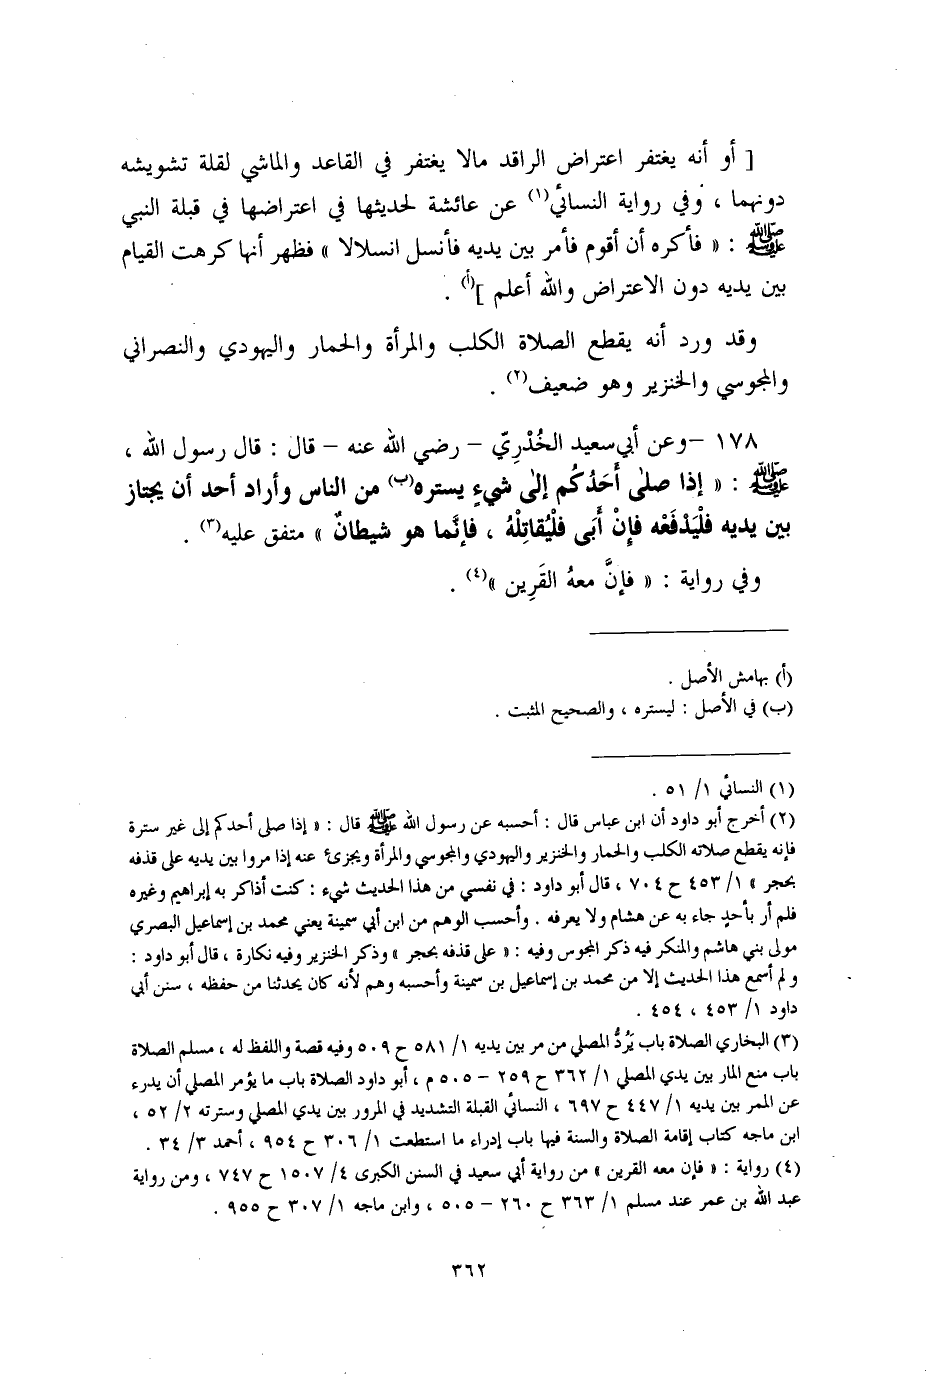 [ أو أنه يغتفر اعتراض الراقد مالا يغتفر في القاعد والماشي لقلة تشويشه
دونهما ، وفي رواية النسائي(١) عن عائشة لحديثها في اعتراضها في قبلة النبي
ﷺ : « فأكره أن أقوم فأمر بين يديه فأنسل انسلالا » فظهر أنها كرهت القيام
بين يديه دون الاعتراض والله أعلم ](أ) .
وقد ورد أنه يقطع الصلاة الكلب والمرأة والحمار واليهودي والنصراني
والمجوسي والخنزير وهو ضعيف(٢) .
١٧٨ -وعن أبي سعيد الخُدْرِيّ – رضي الله عنه – قال : قال رسول الله ،
ﷺ : « إذا صلى أَحَدُكُم إلى شيءٍ يستره(ب) من الناس وأراد أحد أن يجتاز
بين يديه فلْيَدْفَعْه فإنْ أَبَى فلْيُقاتِلْهُ ، فإنَّما هو شيطانٌ » متفق عليه(٣) .
وفي رواية : « فإنَّ معهُ القَرِين »(٤) .
(أ) بهامش الأصل .
(ب) في الأصل : ليستره ، والصحيح المثبت .
(١) النسائي ١/ ٥١ .
(٢) أخرج أبو داود أن ابن عباس قال : أحسبه عن رسول الله ﷺ قال : « إذا صلى أحدكم إلى غير سترة
فإنه يقطع صلاته الكلب والحمار والخنزير واليهودي والمجوسي والمرأة ويجزئ عنه إذا مروا بين يديه على قذفه
بحجر » ١/ ٤٥٣ ح ٧٠٤ ، قال أبو داود : في نفسي من هذا الحديث شيء : كنت أذاكر به إبراهيم وغيره
فلم أر بأحدٍ جاء به عن هشام ولا يعرفه . وأحسب الوهم من ابن أبي سمينة يعني محمد بن إسماعيل البصري
مولى بني هاشم والمنكر فيه ذكر المجوس وفيه : « على قذفه بحجر » وذكر الخنزير وفيه نكارة ، قال أبو داود :
ولم أسمع هذا الحديث إلا من محمد بن إسماعيل بن سمينة وأحسبه وهم لأنه كان يحدثنا من حفظه ، سنن أبي
داود ١/ ٤٥٣ ، ٤٥٤ .
(٣) البخاري الصلاة باب يَرُدُّ المصلي من مر بين يديه ١/ ٥٨١ ح ٥٠٩ وفيه قصة واللفظ له ، مسلم الصلاة
باب منع المار بين يدي المصلي ١/ ٣٦٢ ح ٢٥٩ – ٥٠٥ م ، أبو داود الصلاة باب ما يؤمر المصلي أن يدرء
عن الممر بين يديه ١/ ٤٤٧ ح ٦٩٧ ، النسائي القبلة التشديد في المرور بين يدي المصلي وسترته ٢/ ٥٢ ،
ابن ماجه كتاب إقامة الصلاة والسنة فيها باب إدراء ما استطعت ١/ ٣٠٦ ح ٩٥٤ ، أحمد ٣/ ٣٤ .
(٤) رواية : « فإن معه القرين » من رواية أبي سعيد في السنن الكبرى ٤/ ١٥٠٧ ح ٧٤٧ ، ومن رواية
عبد الله بن عمر عند مسلم ١/ ٣٦٣ ح ٢٦٠ – ٥٠٥ ، وابن ماجه ١/ ٣٠٧ ح ٩٥٥ .
٣٦٢